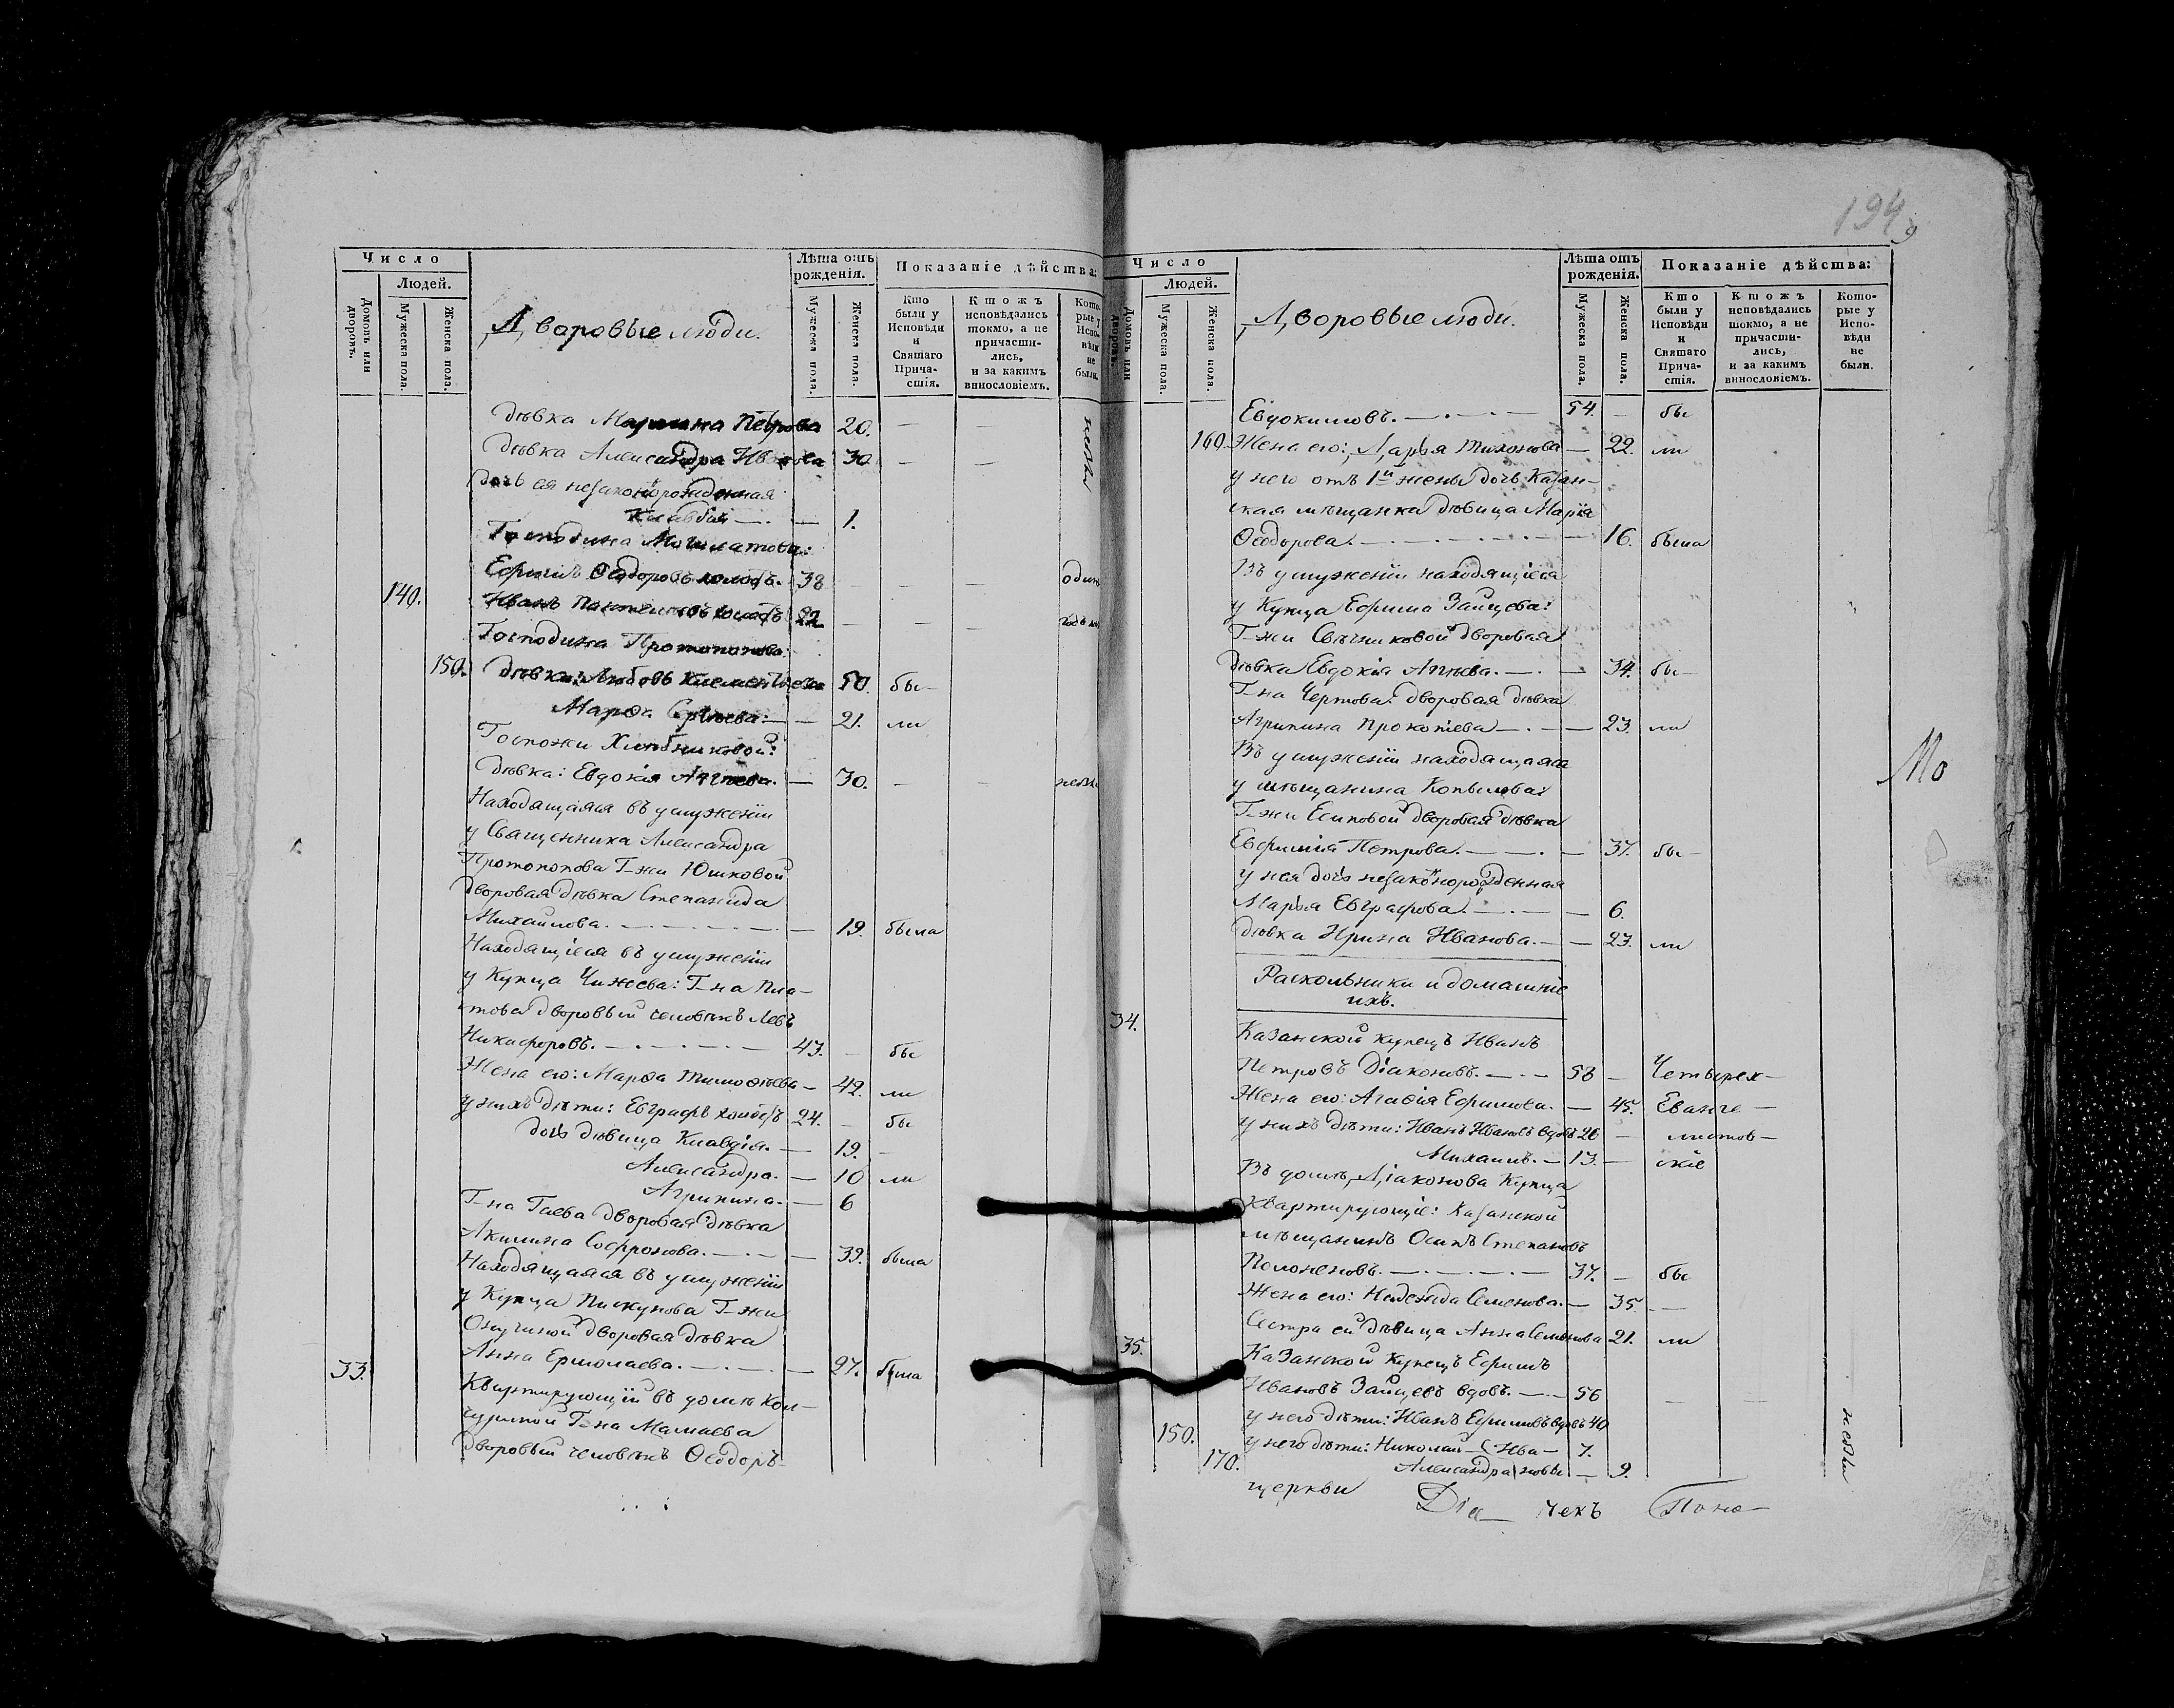 194
Число
Людей.
Домовъ или дворовъ.
Мужеска пола.
Женска пола.
Дворовые люди.
Лѣта отъ рожденія.
Мужеска пола.
Женска пола.
Показаніе дѣйства:
Кто были у Исповѣди и Святаго Причастія.
Ктожъ исповѣдались токмо, а не причастились, и за какимъ винословіемъ.
Которые у Исповѣди не были.
дѣвка Марина Петрова 20. — —
дѣвка Александра Иванова 30 — —
дочь ея незаконорожденная
Клавдія — — 1.
Господина
Ефимъ Ѳедоровъ холостъ. 38 — — —
140. Иванъ холостъ 22 — — —
Господина Протопопова:
150. дѣвки: Любовь Клементьева 50. бы-
Марѳа Сергѣева — — 21. ли
Госпожи Хлѣбниковой:
дѣвка: Евдокія — 30. — —
Находящаяся въ услуженіи
у Священника Александра
Протопопова Г-жи Юшковой
дворовая дѣвка Степанида
Михайлова. — 19. была
Находящіеся въ услуженіи
у Купца Чижева: Г-на Пла-
това дворовый человѣкъ Левъ
Никифоровъ. — 43. — бы
Жена его: Марѳа Тимоѳѣева — 42. ли
у нихъ дѣти: Евграфъ холостъ 24. — бы
дочь дѣвица Клавдія. — 19. —
Александра. — 10 ли
Агрипина. — 6
Г-на Гаева дворовая дѣвка
Акилина Софронова. — 39. была
Находящаяся въ услуженіи
у Купца Пискунова Г-жи
дворовая дѣвка
Анна Ермолаева. — 27. была
33.
Квартирующій въ домѣ
Г-на Мамаева
дворовый человѣкъ Ѳеодоръ
Число
Людей.
Домовъ или дворовъ.
Мужеска пола.
Женска пола.
Дворовые люди.
Лѣта отъ рожденія.
Мужеска пола.
Женска пола.
Показаніе дѣйства:
Кто были у Исповѣди и Святаго Причастія.
Ктожъ исповѣдались токмо, а не причастились, и за какимъ винословіемъ.
Которые у Исповѣди не были.
Евдокимовъ. — 54. — бы
160. Жена его: Дарья Тихонова — 22. ли
у него отъ 1й жены дочь Казан-
ская мѣщанка дѣвица Марія
Ѳеодорова. — 16. была
Въ услуженіи находящіеся
у Купца Ефима Зайцева:
Г-жи Свѣчниковой дворовая
дѣвка Евдокія — 34. бы-
Г-на Чертова дворовая дѣвка
Агрипина Прокопіева — 23. ли
Въ услуженіи находящаяся
у мѣщанина Копылова:
Г-жи Есиповой дворовая дѣвка
Евфимія Петрова. — 37. бы-
у нея дочь незаконорожденная
Марья Евграфова. — 6.
дѣвка Ирина Иванова. — 23. ли
Раскольники и домашніе
ихъ.
34.
Казанской купецъ Иванъ
Петровъ Діаконовъ. — 58 — Четырех-
Жена его: Агаѳія Ефимова. — 45. Еванге-
у нихъ дѣти: Иванъ Ивановъ вдовъ 26 — листов-
Михаилъ. — 13. — скіе
Въ домѣ Діаконова Купца
Квартирующіе: Казанской
мѣщанинъ Осипъ Степановъ
— 37. — бы
Жена его: Надежда Семенова. — 35. —
Сестра ей дѣвица Анна Семенова 21. ли
35.
Казанской купецъ Ефимъ
Ивановъ Зайцевъ вдовъ. — 56 — —
у него дѣти: Иванъ Ефимовъ вдовъ 40
150. у него дѣти: Николай Ива- 7.
170. Александра новы — 9.
церкви Діа- Поно-